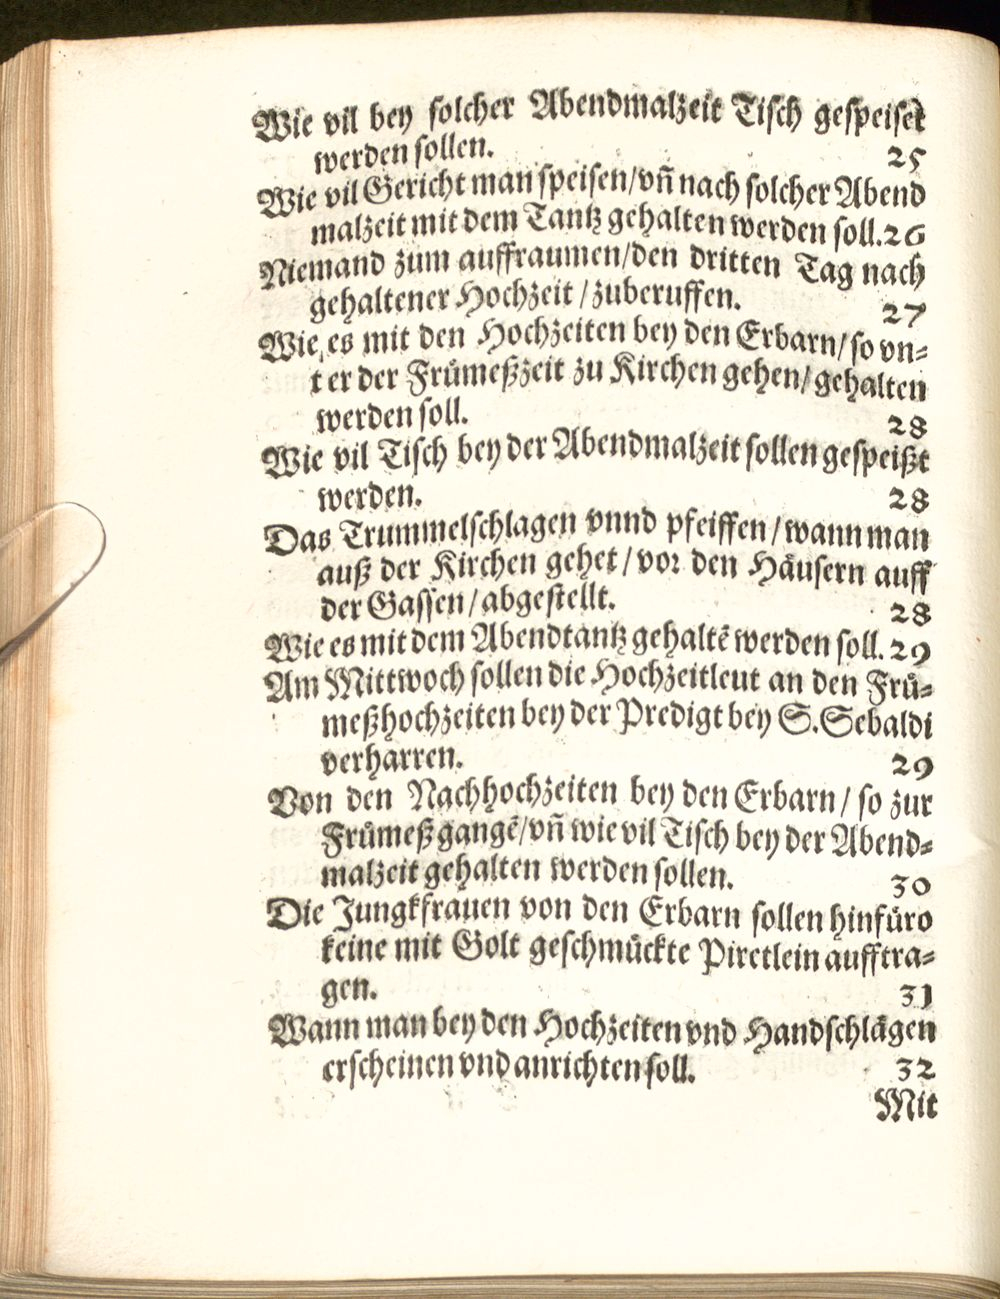 Wie vil bey solcher Abendmalzeit Tisch gespeiset
werden sollen. 25
Wie vil Gericht man speisen/vñ nach solcher Abend
malzeit mit dem Tantz gehalten werden soll. 26
Niemand zum auffraumen/den dritten Tag nach
gehaltener Hochzeit/zuberuffen. 27
Wie es mit den Hochzeiten bey den Erbarn/so vn⸗
ter der Fruͤmeßzeit zu Kirchen gehen/gehalten
werden soll. 28
Wie vil Tisch bey der Abendmalzeit sollen gespeißt
werden. 28
Das Trummelschlagen vnnd pfeiffen/wann man
auß der Kirchen gehet/vor den Haͤusern auff
der Gassen/abgestellt. 28
Wie es mit dem Abendtantz gehaltẽ werden soll. 29
Am Mittwoch sollen die Hochzeitleut an den Fruͤ⸗
meßhochzeiten bey der Predigt bey S. Sebaldi
verharren. 29
Von den Nachhochzeiten bey den Erbarn/so zur
Fruͤmeß gangẽ/vñ wie vil Tisch bey der Abend⸗
malzeit gehalten werden sollen. 30
Die Jungkfrauen von den Erbarn sollen hinfuͤro
keine mit Golt geschmuͤckte Piretlein aufftra⸗
gen. 31
Wann man bey den Hochzeiten vnd Handschlaͤgen
erscheinen vnd anrichten soll. 32
Mit